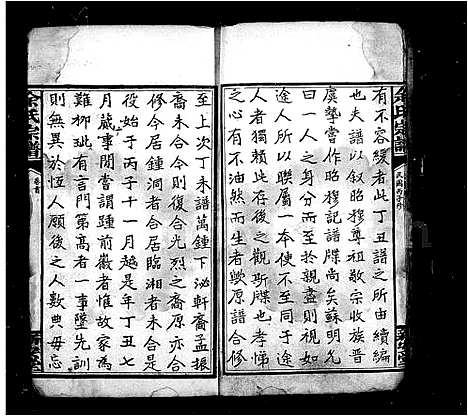 有不容緩者此丁丑譜之所由續編
也夫譜以昭穆尊祖敬宗收族晉
虞摯嘗作昭穆記譜牒尚矣蘇明允
曰一人之身分而至於親盡則視如
途人所以聯屬一本使不至同于途
人者獨賴此存之歟觀斯牒也孝悌
之心有不油然而生者歟原譜合修
至上次丁未譜萬鍾下泌軒裔孟振
裔未合今則復合光烈之裔原亦合
修今居鍾洞者合居臨湘者未合是
役始于丙子十一月越是年丁丑七
月蕆事閒嘗謂踵前徽者惟故家為
難柳玭有言門第高者一事墜先訓
則無異於恆人願後之人數典毋忘
余氏宗譜
卷首
余氏宗譜
民國丙子修